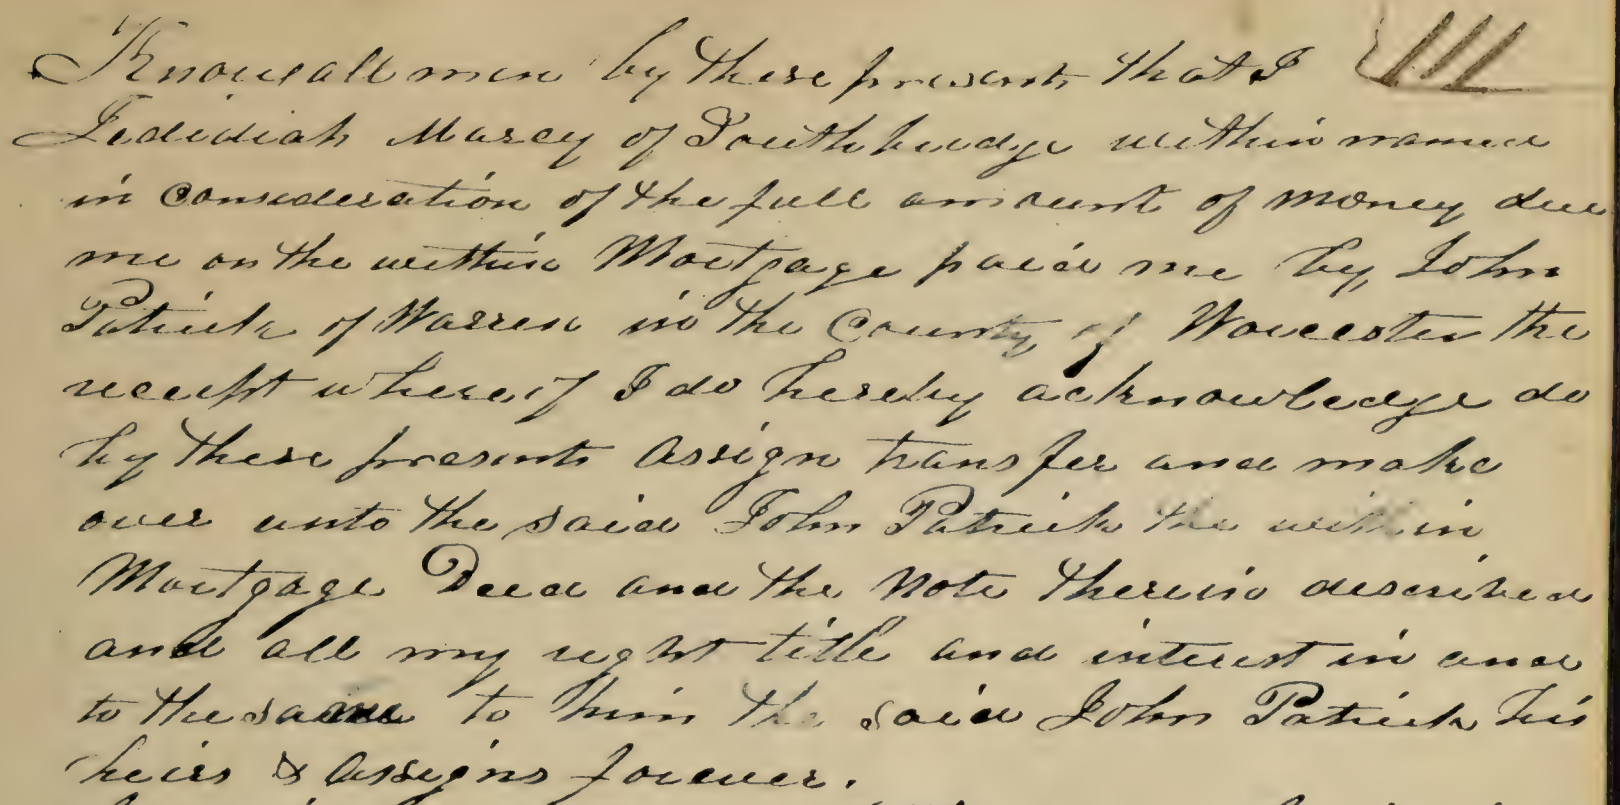 Know all men by these presents that I
Jedidiah Marcy of Southbridge within named
in Consideration of the full amount of money due
me on the within Mortgage paid me by John
Patrick of Warren in the County of Worcester the
receipt whereof I do hereby acknowledge do
by these presents assign transfer and make
over unto the said John Patrick the within
Mortgage Deed and the Note therein described
and all my right title and interest in and
to the same to him the said John Patrick his
heirs & assigns forever.